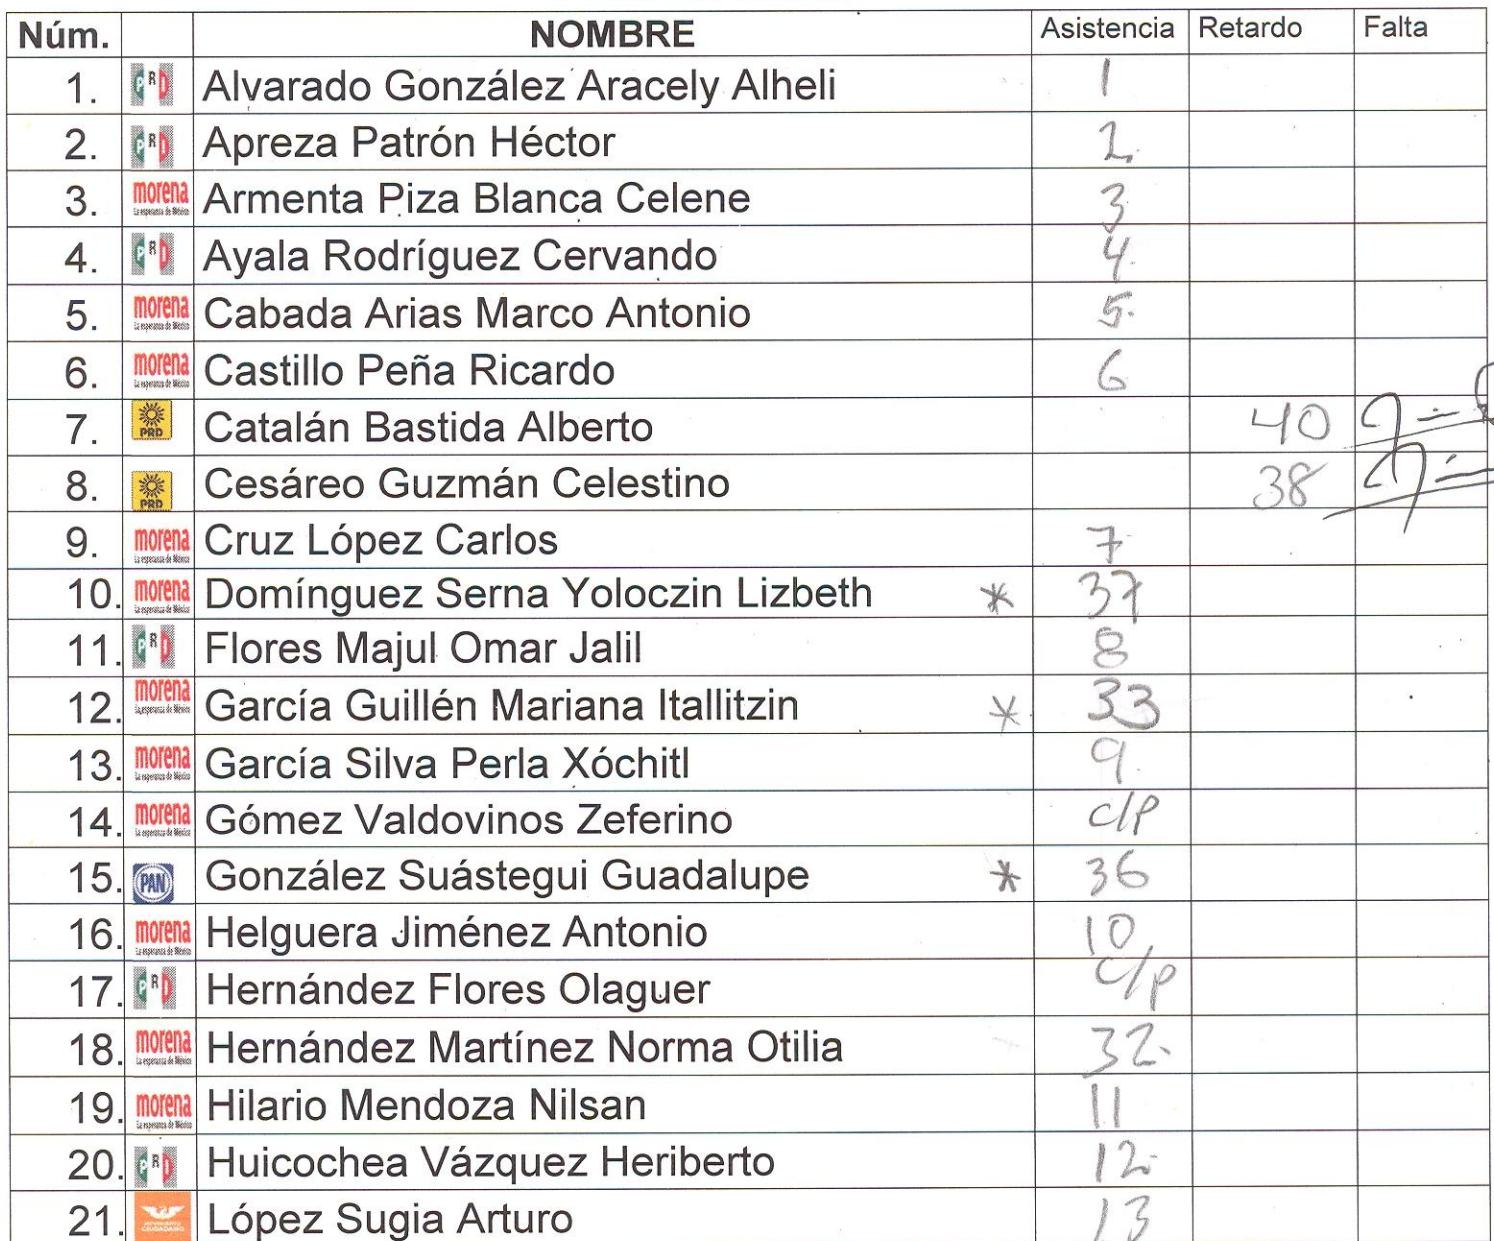 Núm. NOMBRE Asistencia Retardo Falta
1. PRI Alvarado González Aracely Alheli 1
2. PRI Apreza Patrón Héctor 2
3. morena La esperanza de México Armenta Piza Blanca Celene 3
4. PRI Ayala Rodríguez Cervando 4
5. morena La esperanza de México Cabada Arias Marco Antonio 5
6. morena La esperanza de México Castillo Peña Ricardo 6
7. PRD Catalán Bastida Alberto 40
8. PRD Cesáreo Guzmán Celestino 38
9. morena La esperanza de México Cruz López Carlos 7
10. morena La esperanza de México Domínguez Serna Yoloczin Lizbeth * 37
11. PRI Flores Majul Omar Jalil 8
12. morena La esperanza de México García Guillén Mariana Itallitzin * 33
13. morena La esperanza de México García Silva Perla Xóchitl 9
14. morena La esperanza de México Gómez Valdovinos Zeferino c/p
15. PAN González Suástegui Guadalupe * 36
16. morena La esperanza de México Helguera Jiménez Antonio 10
17. PRI Hernández Flores Olaguer c/p
18. morena La esperanza de México Hernández Martínez Norma Otilia 32
19. morena La esperanza de México Hilario Mendoza Nilsan 11
20. PRI Huicochea Vázquez Heriberto 12
21. MOVIMIENTO CIUDADANO López Sugia Arturo 13